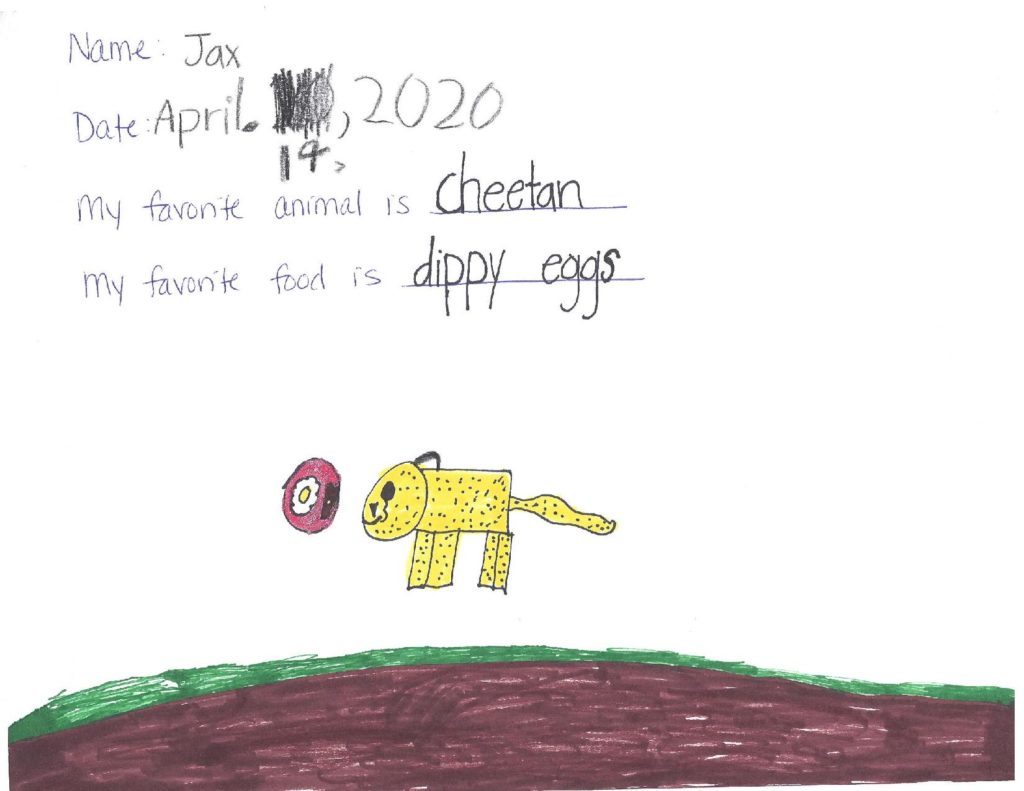 Name: Jax
Date: April. , 2020
14,
My favorite animal is cheetah
My favorite food is dippy eggs